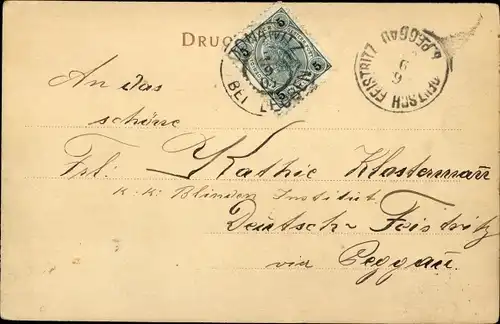 DRUC
DONAWITZ
BEI LEOBEN
5 5
5 5
DEUTSCH FEISTRITZ
PEGGAU
9
An das
schöne
Frl: Kathie Klostermann
K. K. Blinden Institut
Deutsch-Feistritz
via Peggau.